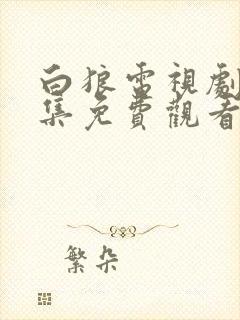 白狼電視劇
集免費觀看
繁朵